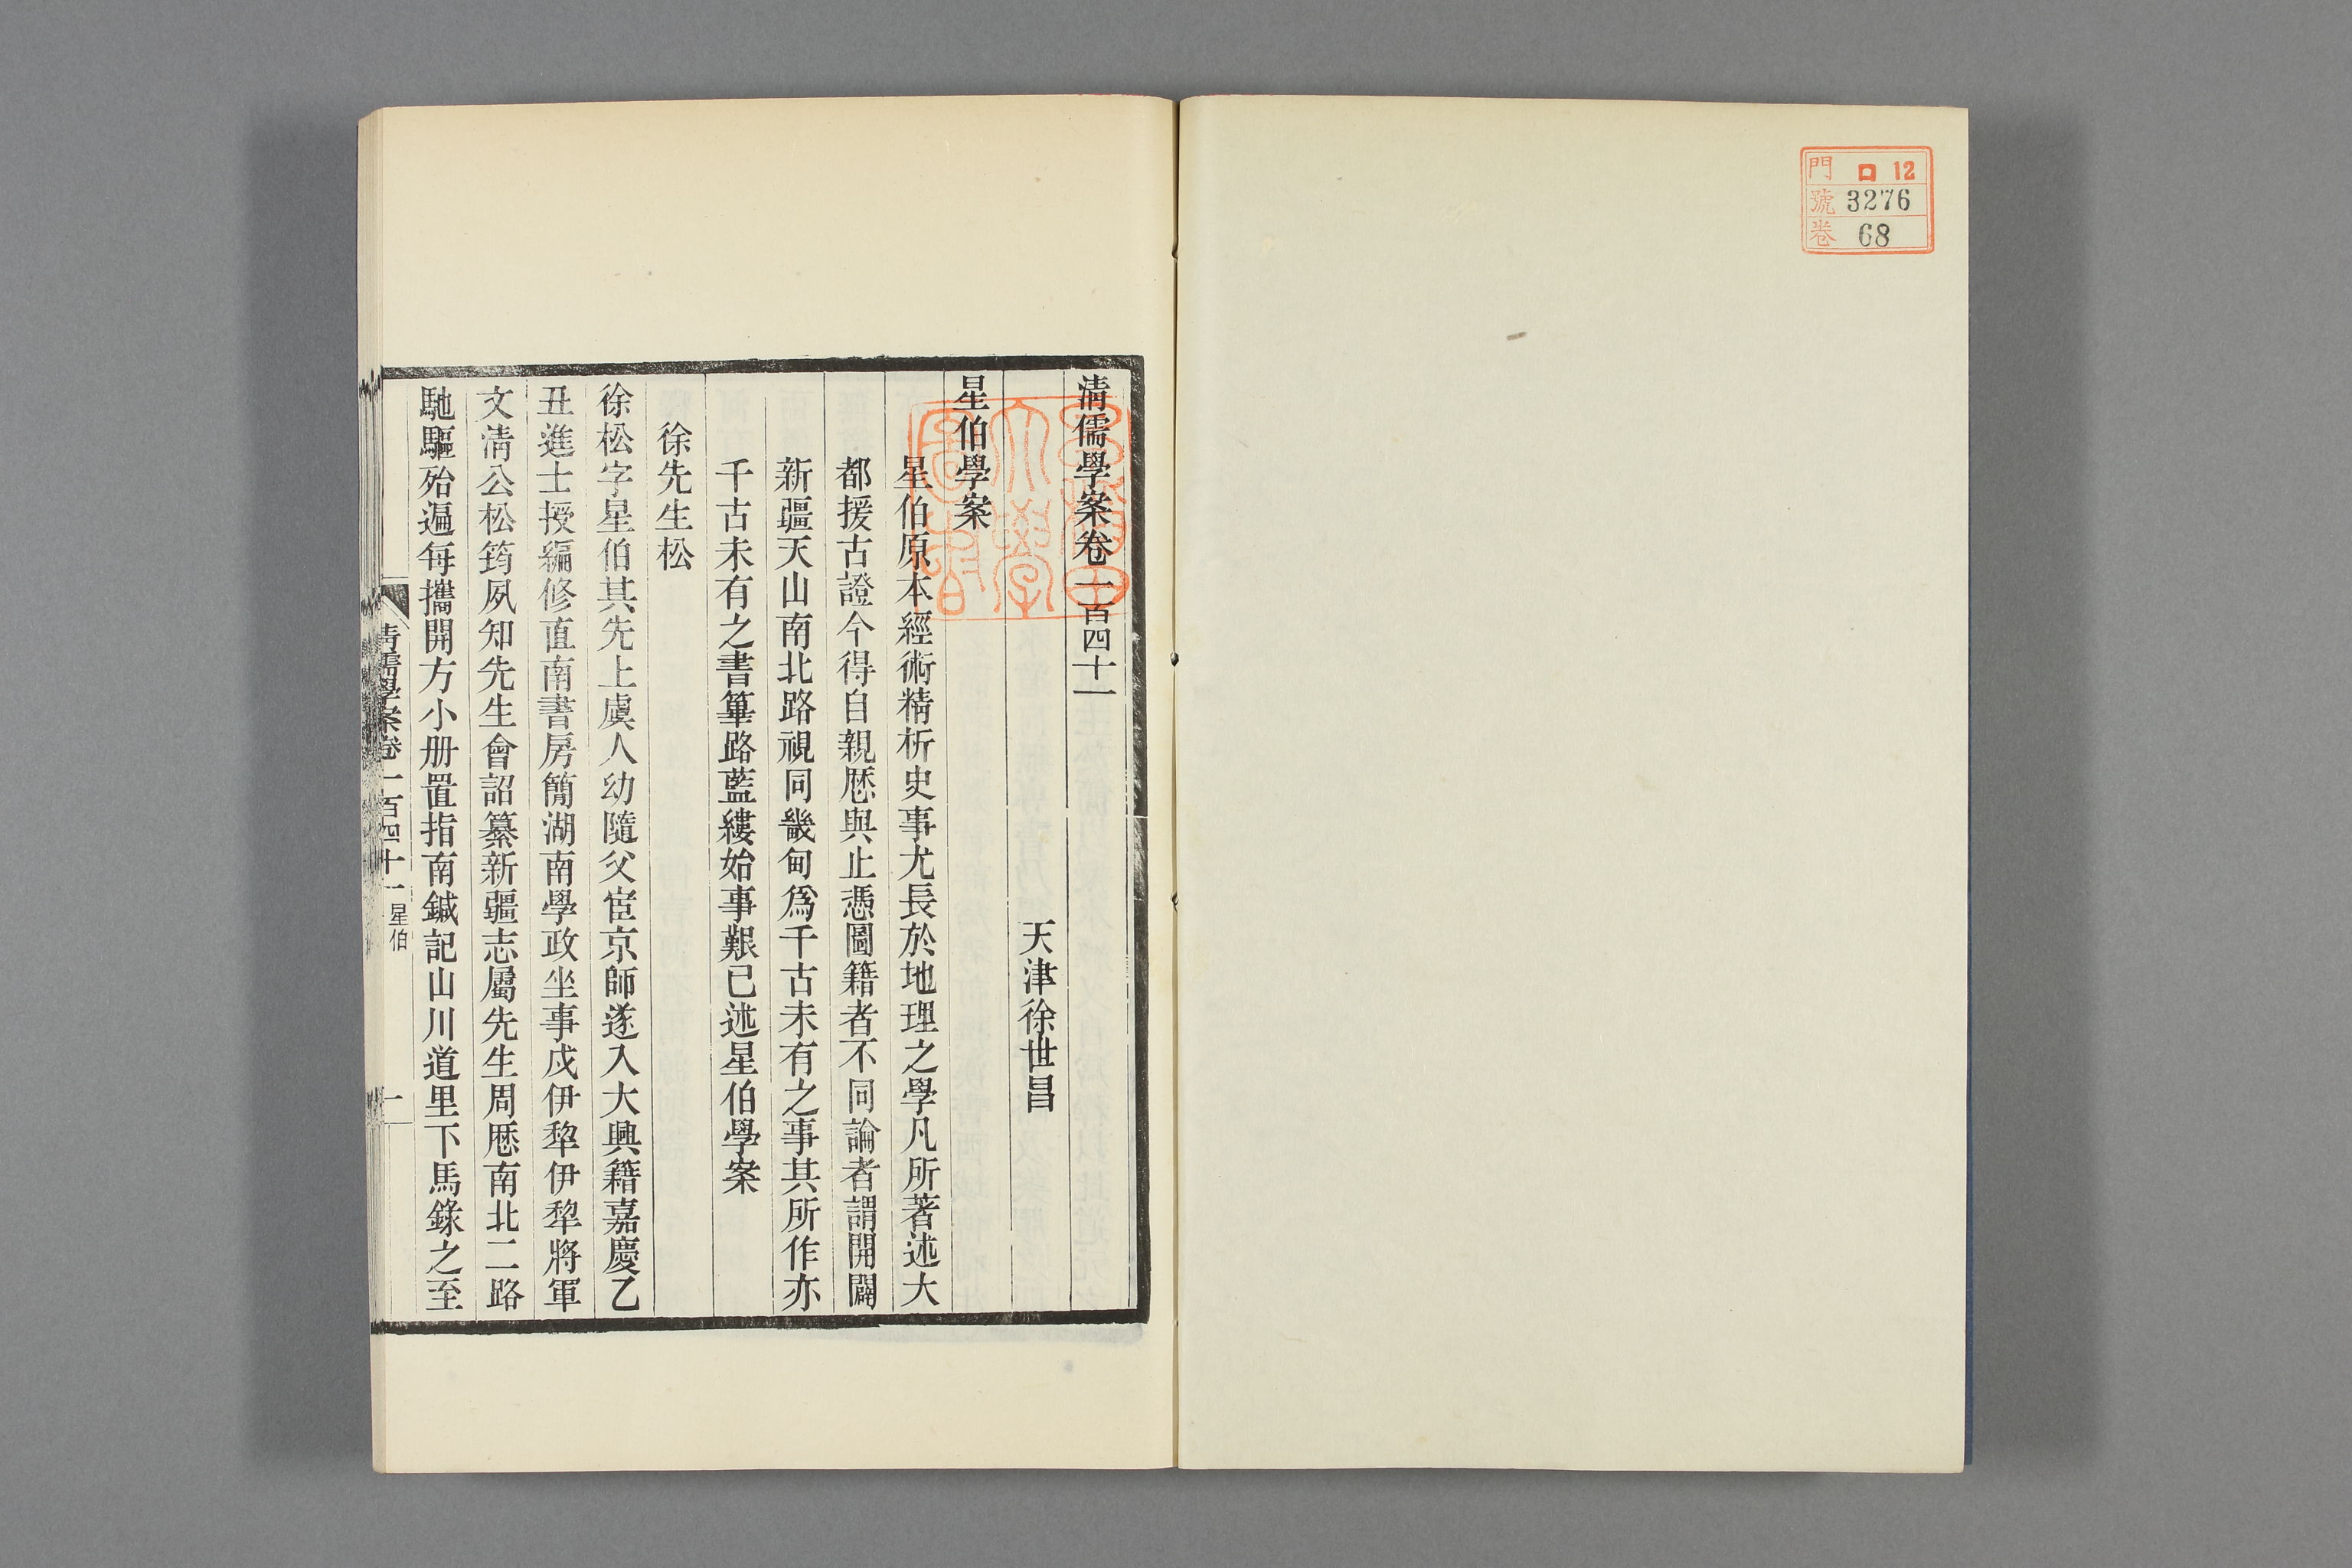 門 ロ 12
號 3276
卷 68
清儒學案卷一百四十一
天津徐世昌
星伯學案
星伯原本經術精析史事尤長於地理之學凡所著述大
都援古證今得自親歷與止憑圖籍者不同論者謂開闢
新疆天山南北路視同畿甸爲千古未有之事其所作亦
千古未有之書篳路藍縷始事艱已述星伯學案
徐先生松
徐松字星伯其先上虞人幼隨父宦京師遂入大興籍嘉慶乙
丑進士授編修直南書房簡湖南學政坐事戍伊犂伊犂將軍
文清公松筠夙知先生會詔纂新疆志屬先生周歷南北二路
馳驅殆遍每攜開方小册置指南鍼記山川道里下馬錄之至
清儒學案卷一百四十一 星伯 一
早稻田大學圖書